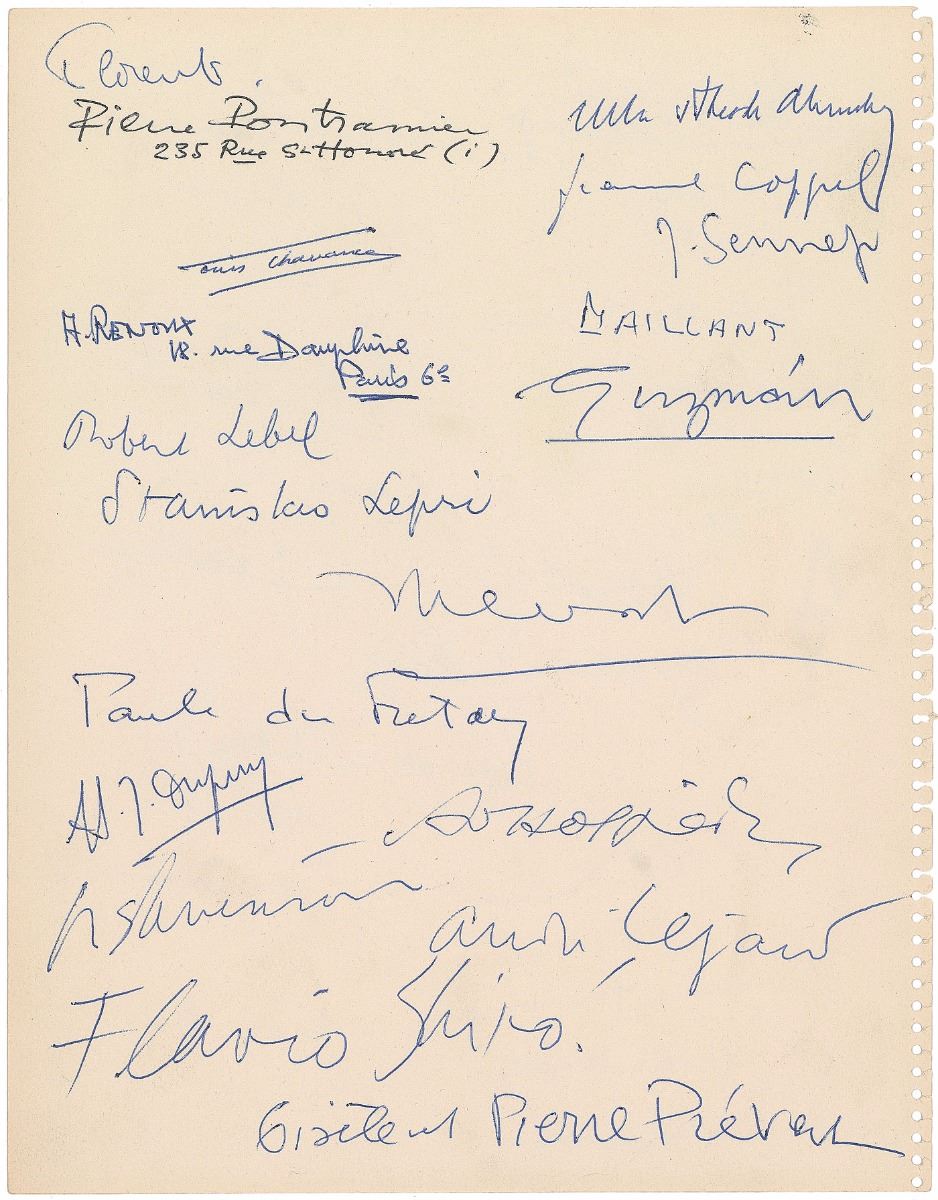 Florent.
Pierre
235 Rue St-Honoré (1)
Louis Chavance
A. RENOUX
18. rue Dauphine
Paris 6e
Robert Lebel
Stanislao Lepri
Ulla
Jeanne Coppel
J. Sennep
MAILLANT
Guzmán
Paule du Fretay
J. Dupuy
André Lejard
Flavio Shiró.
Gisèle et Pierre Prévert